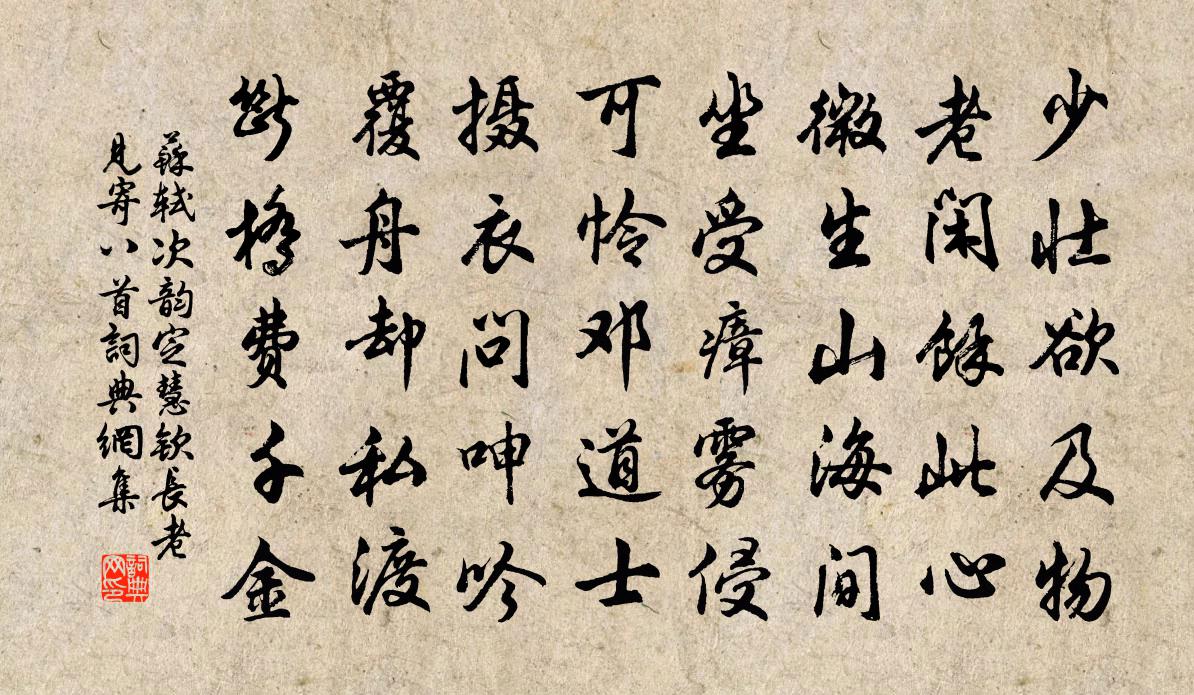 少壮欲及物
老闲馀此心
微生山海间
坐受瘴雾侵
可怜邓道士
摄衣问呻吟
覆舟却私渡
断桥费千金
蘇轼次韵定慧钦長老
見寄八首詞典網集
詞典
网印